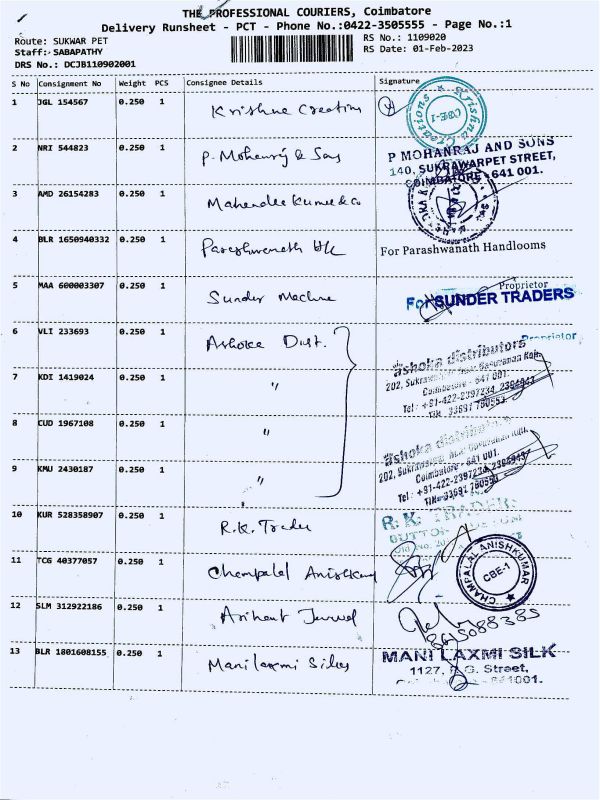 THE PROFESSIONAL COURIERS, Coimbatore
Delivery Runsheet - PCT - Phone No.:0422-3505555 - Page No.:1
Route: SUKWAR PET
RS No.: 1109020
Staff: SABAPATHY
RS Date: 01-Feb-2023
DRS No.: DCJB110902001
S No Consignment No Weight PCS Consignee Details Signature
1 JGL 154567 0.250 1 Krishna Creation
Krishna Creations CBE-1
2 NRI 544823 0.250 1 P. Mohanraj & Sons
P MOHANRAJ AND SONS
140, SUKRAWARPET STREET,
COIMBATORE - 641 001.
3 AMD 26154283 0.250 1 Mahendra Kumar & Co
4 BLR 1650940332 0.250 1 Parashwanath
For Parashwanath Handlooms
Proprietor
5 MAA 600003307 0.250 1 Sunder Machine
For SUNDER TRADERS
Proprietor
6 VLI 233693 0.250 1 Ashoka Dist.
ashoka distributors
202, Sukrawarpet
Coimbatore - 641 001.
Tel : +91-422-2397234, 2394943
TIN : 33691 780553
7 KDI 1419024 0.250 1 "
8 CUD 1967108 0.250 1 "
ashoka distributors
202, Sukrawarpet
Coimbatore - 641 001.
Tel : +91-422-2397234, 2394943
TIN : 33691 780553
9 KMU 2430187 0.250 1 "
10 KUR 528358907 0.250 1 R.K. Trader
R. K. TRADERS
BUTTON
11 TCG 40377057 0.250 1 Champalal Anishkumar
CHAMPALAL ANISHKUMAR CBE-1
12 SLM 312922186 0.250 1 Arihant Jewel
8615088385
13 BLR 1801608155 0.250 1 Manilaxmi Silks
MANI LAXMI SILK
1127, R.G. Street,
641001.